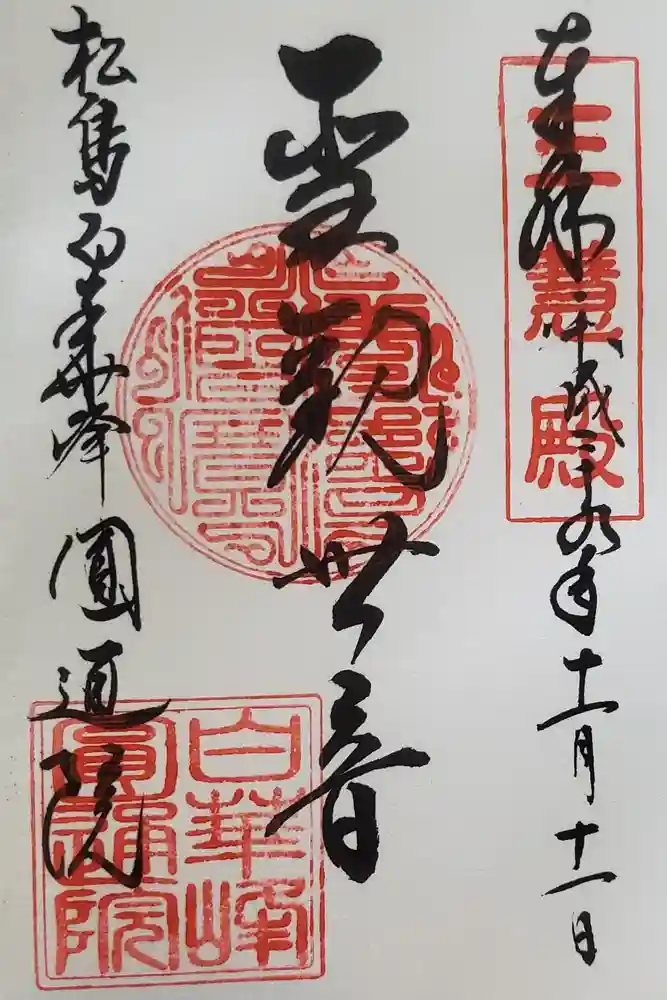 奉拝 平成二十九年十一月十一日
三慧殿
聖観世音
松島 白華峰 圓通院
白華峰
圓通院